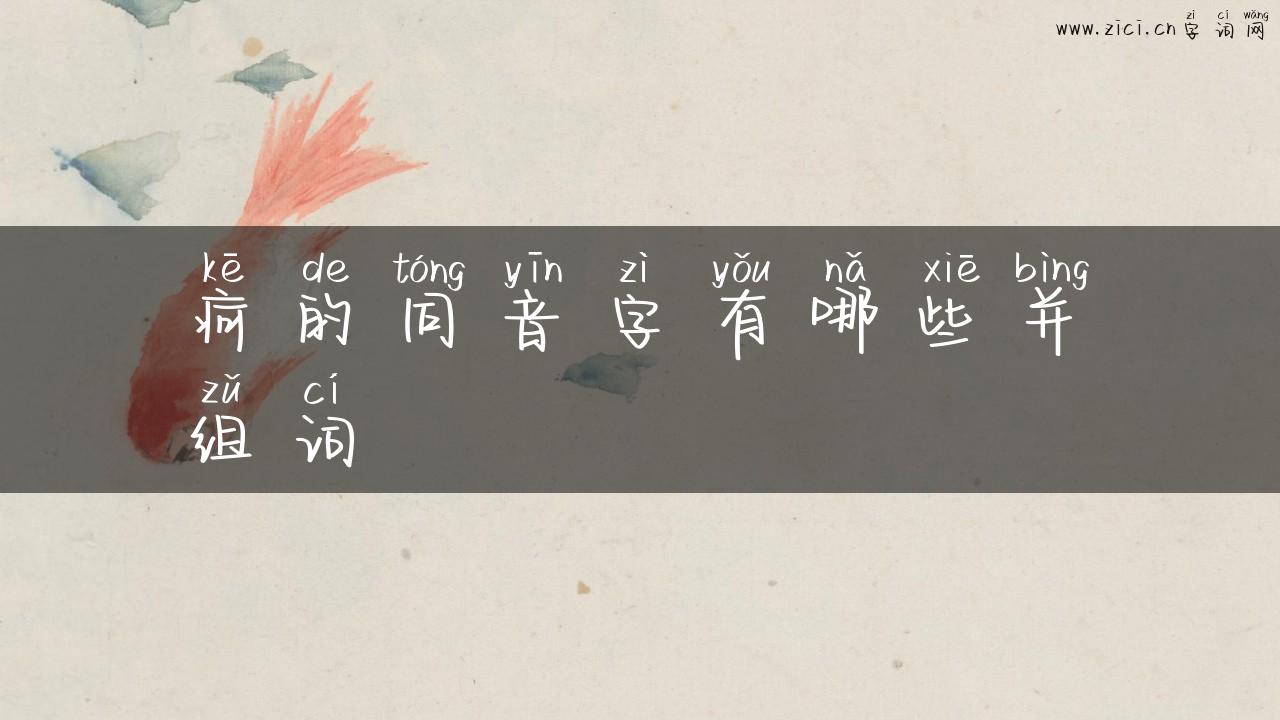 zì cí wǎng
www.zici.cn 字词网
kē de tóng yīn zì yǒu nǎ xiē bìng
疴的同音字有哪些并
zǔ cí
组词